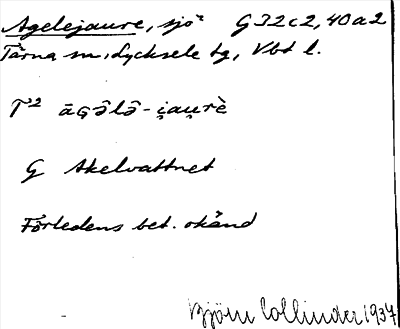 Agelejaure, sjö² G 32 c 2, 40 a 2
Tärna sn, Lycksele tg, Vbt l.
T² āɢə̂lə̂-i̯au̯rè
G Akelvattnet
Förledens bet. okänd
Björn Collinder 1937